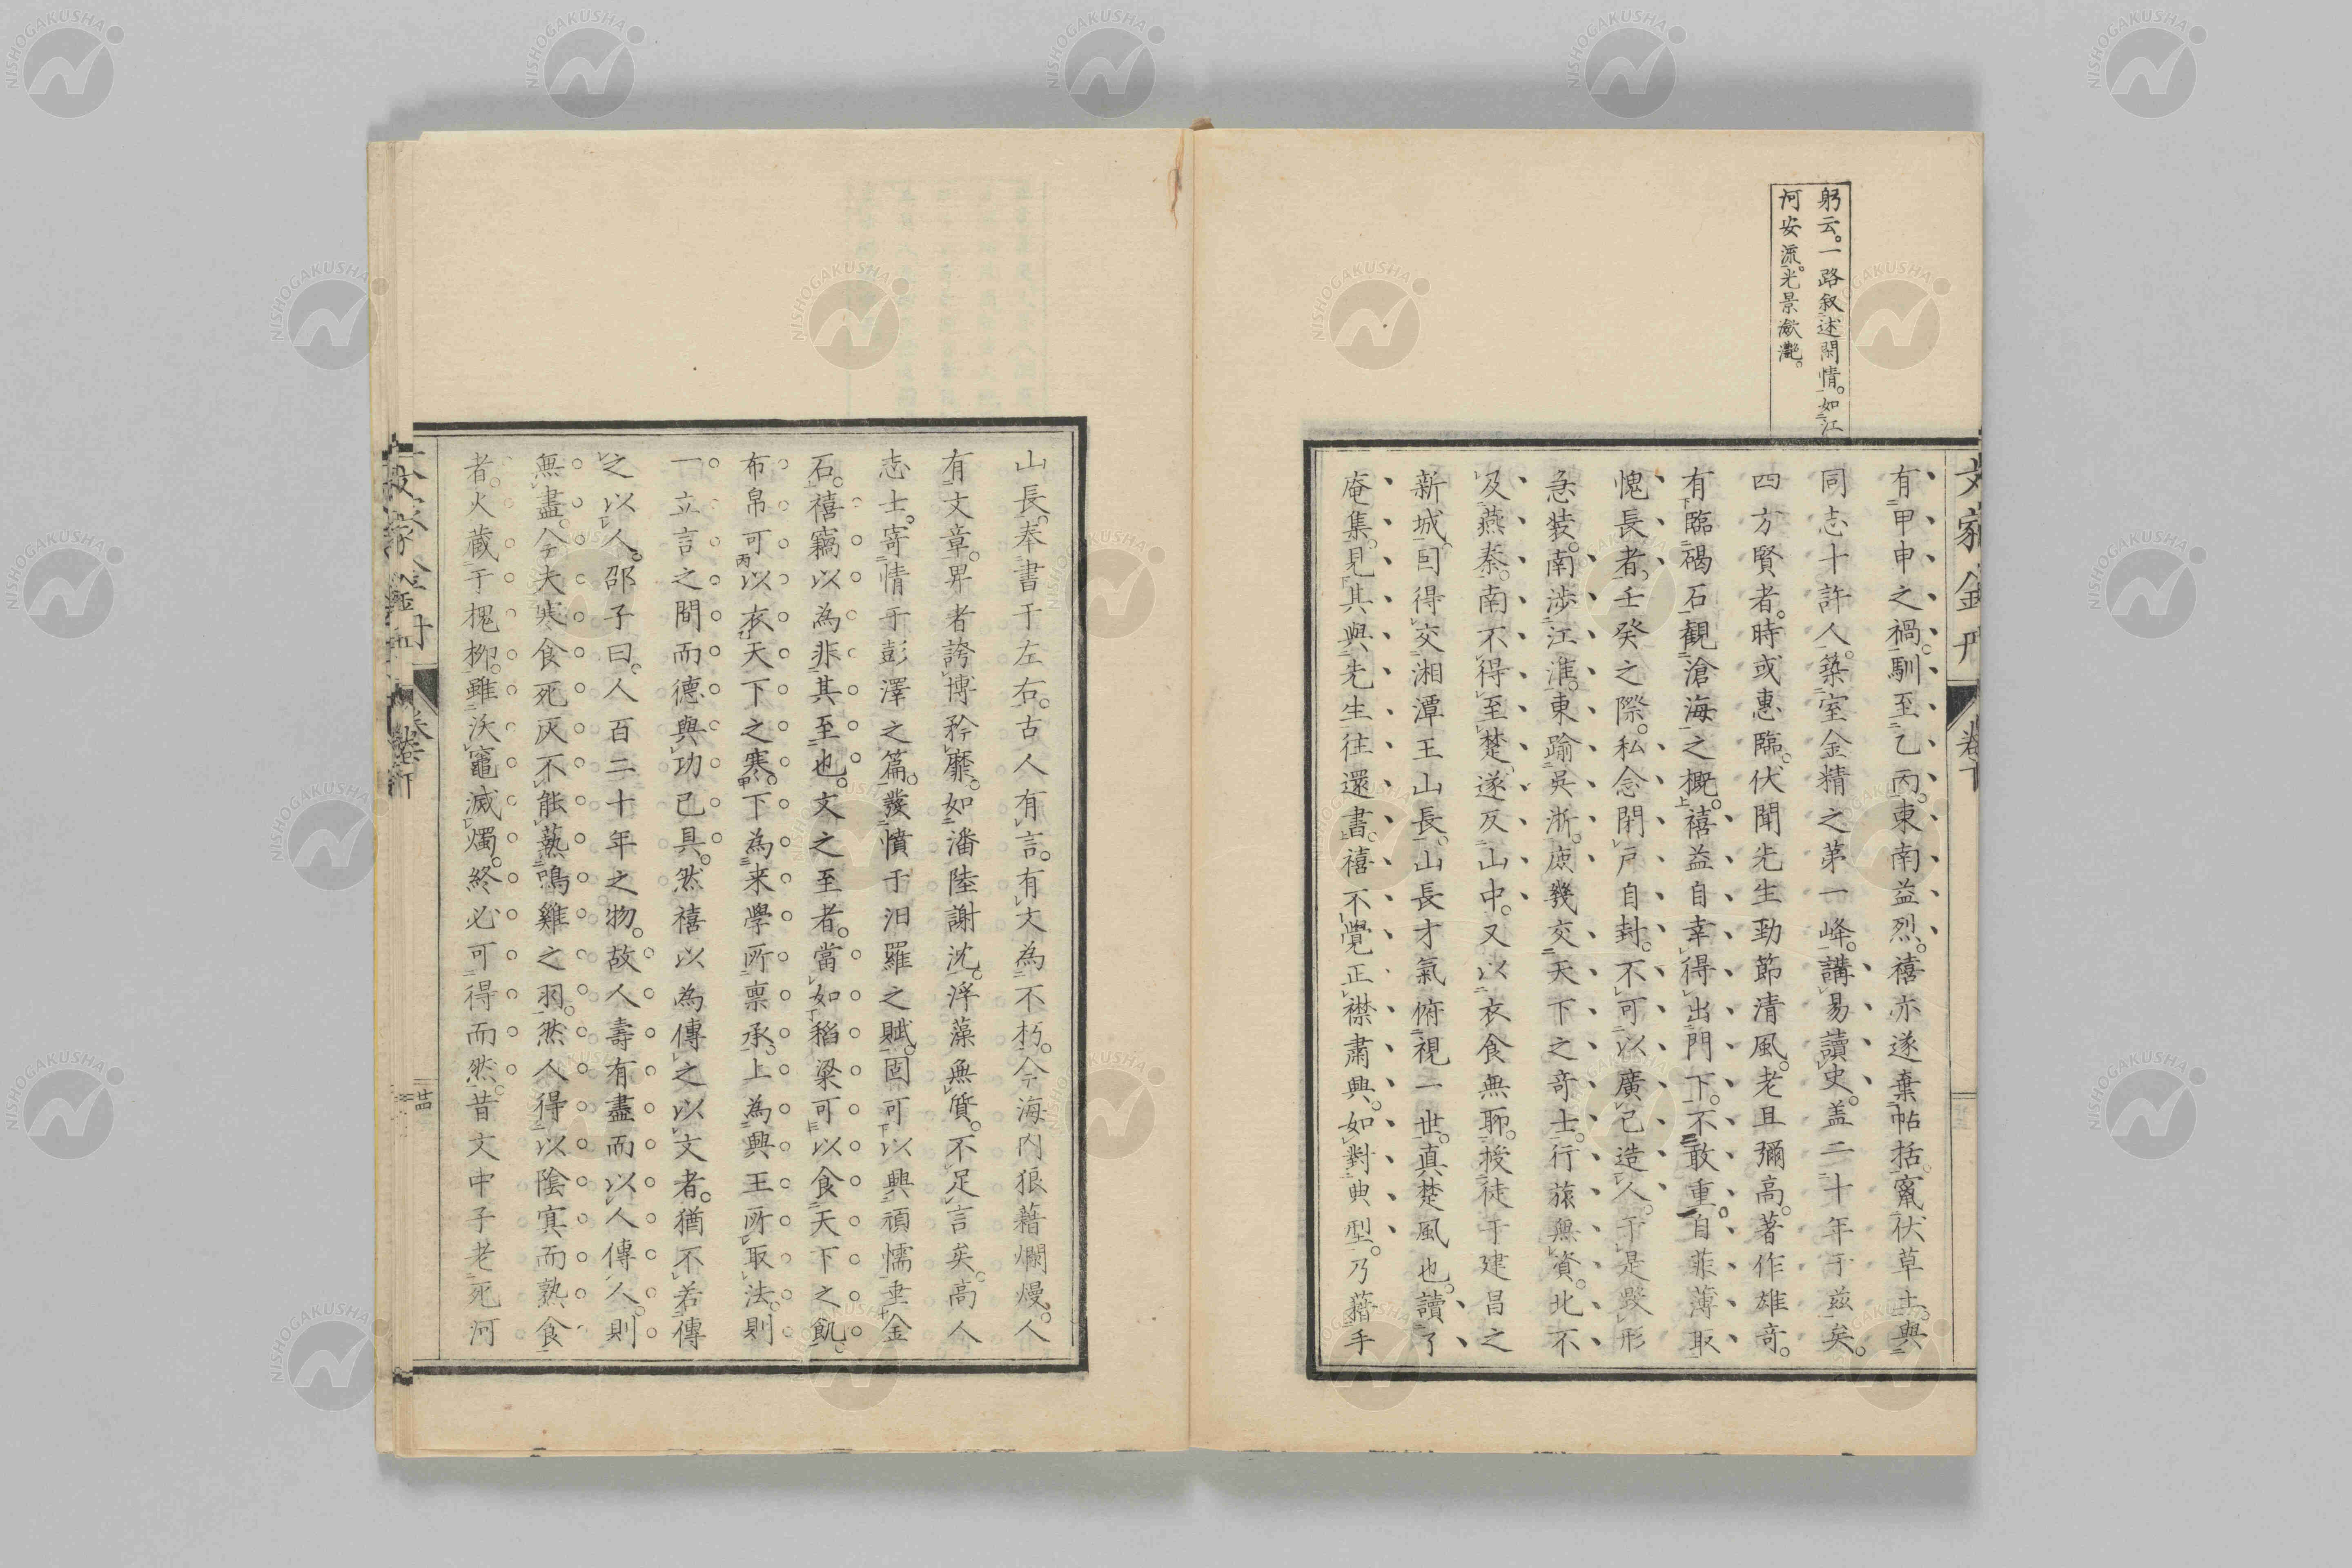 躬云。一路叙述閑情。如江
河安流。光景瀲灩。
有甲申之禍。馴至乙丙。東南益烈。禧亦遂棄帖括。竄伏草土。與
同志十許人。築室金精之第一峰。講易讀史。盖二十年于茲矣。
四方賢者。時或惠臨。伏聞先生勁節清風。老且彌高。著作雄奇。
有臨碣石觀滄海之概。禧益自幸得出門下。不敢重自菲薄取
愧長者。壬癸之際。私念閉戸自封。不可以廣己造人。于是毀形
急裝。南涉江淮。東踰吳浙。庶幾交天下之奇士。行旅無資。北不
及燕秦。南不得至楚。遂反山中。又以衣食無聊。授徒于建昌之
新城。因得交湘潭王山長。山長才氣俯視一世。真楚風也。讀了
庵集。見其與先生往還書。禧不覺正襟肅興。如對典型。乃藉手
山長。奉書于左右。古人有言。有文為不朽。今海内狼藉爛熳。人
有文章。昇者誇博矜靡。如潘陸謝沈。浮藻無質。不足言矣。高人
志士。寄情于彭澤之篇。發憤于汨羅之賦。固可以興頑懦垂金
石。禧竊以為非其至也。文之至者。當如稻粱可以食天下之飢。
布帛可以衣天下之寒。下為来學所禀承。上為興王所取法。則
一立言之間而德與功已具。然禧以為傳之以文者。猶不若傳
之以人。邵子曰。人百二十年之物。故人壽有盡而以人傳人。則
無盡。今夫寒食死灰不能熱鳴雞之羽。然人得以陰寘而熟食
者。火蔵于槐柳。雖沃竈滅燭。終必可得而然。昔文中子老死河
文家金丹
卷下
卷下
廿四